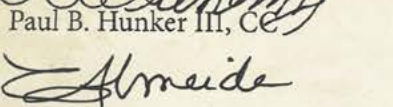 Paul B. Hunker III, CC
Almeida